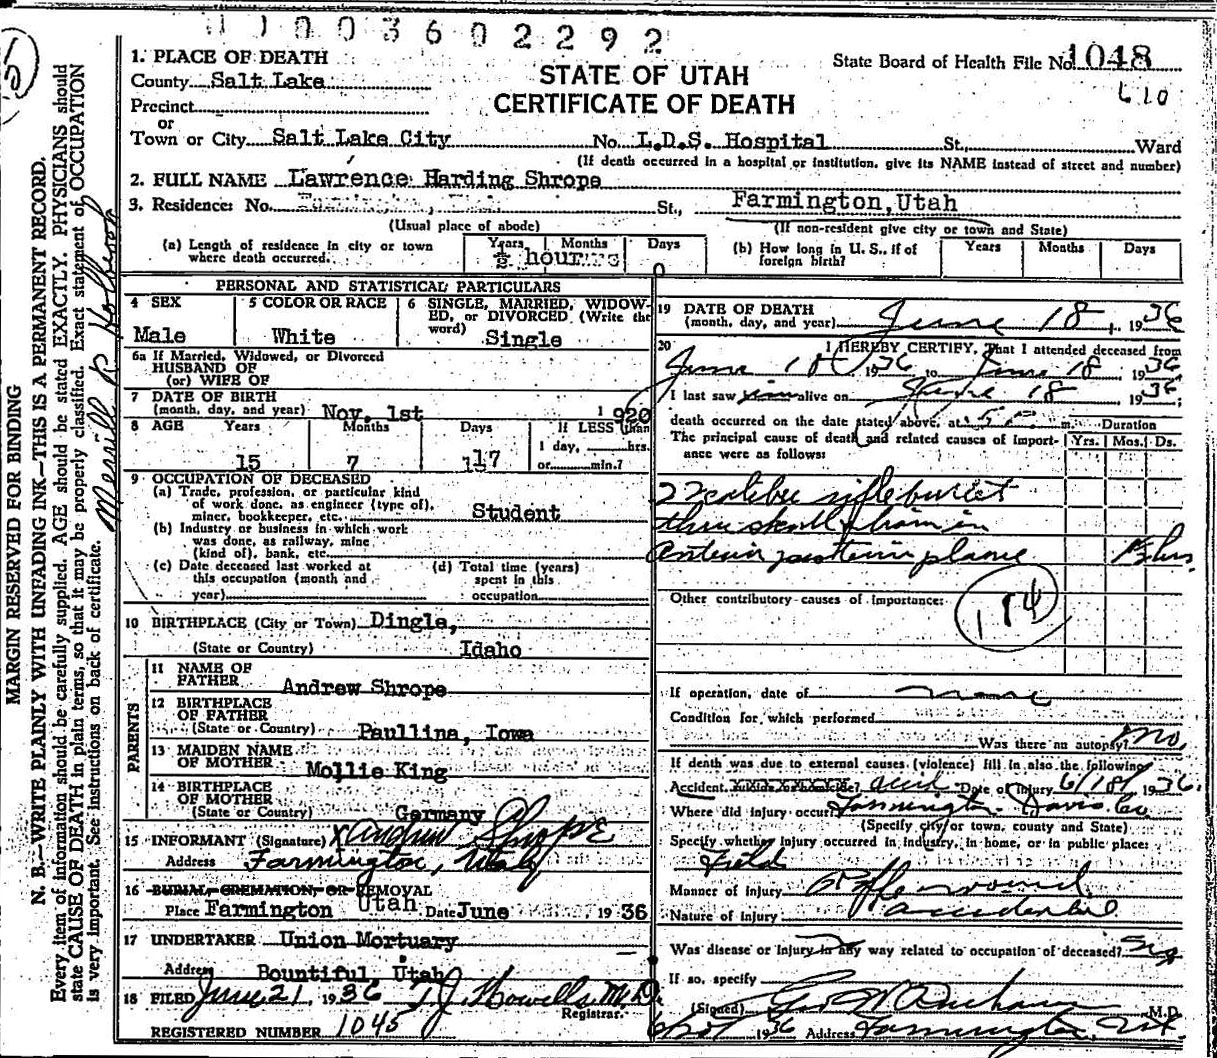 11003602292
1. PLACE OF DEATH
County Salt Lake
Precinct
or
Town or City Salt Lake City No. L.D.S. Hospital St., Ward
(If death occurred in a hospital or institution, give its NAME instead of street and number)
STATE OF UTAH
CERTIFICATE OF DEATH
State Board of Health File No. 1048
610
2. FULL NAME Lawrence Harding Shrope
3. Residence: No. St., Farmington, Utah
(Usual place of abode) (If non-resident give city or town and State)
(a) Length of residence in city or town where death occurred. Years Months Days
½ hours
(b) How long in U. S., if of foreign birth? Years Months Days
PERSONAL AND STATISTICAL PARTICULARS
4 SEX
Male
5 COLOR OR RACE
White
6 SINGLE, MARRIED, WIDOWED, or DIVORCED (Write the word)
Single
6a If Married, Widowed, or Divorced
HUSBAND OF
(or) WIFE OF
7 DATE OF BIRTH
(month, day, and year) Nov. 1st 1920
8 AGE Years Months Days If LESS than
1 day, hrs.
15 7 17 or min.?
9 OCCUPATION OF DECEASED
(a) Trade, profession, or particular kind
of work done, as engineer (type of),
miner, bookkeeper, etc. Student
(b) Industry or business in which work
was done, as railway, mine
(kind of), bank, etc.
(c) Date deceased last worked at
this occupation (month and
year)
(d) Total time (years)
spent in this
occupation
10 BIRTHPLACE (City or Town) Dingle,
(State or Country) Idaho
PARENTS
11 NAME OF
FATHER Andrew Shrope
12 BIRTHPLACE
OF FATHER
(State or Country) Paullina, Iowa
13 MAIDEN NAME
OF MOTHER Mollie King
14 BIRTHPLACE
OF MOTHER
(State or Country) Germany
15 INFORMANT (Signature) X Andrew Shrope
Address Farmington, Utah
16 BURIAL, CREMATION, OR REMOVAL
Place Farmington Utah Date June 1936
17 UNDERTAKER Union Mortuary
Address Bountiful, Utah
18 FILED June 21, 1936 T.J. Howells M.D.
Registrar.
REGISTERED NUMBER 1045
19 DATE OF DEATH
(month, day, and year) June 18, 1936
20 I HEREBY CERTIFY, That I attended deceased from
June 18 1936 to June 18 1936
I last saw him alive on June 18 1936;
death occurred on the date stated above, at 5 P. m. Duration
The principal cause of death and related causes of importance were as follows: Yrs. Mos. Ds.
22 calibre rifle bullet
thru skull & brain in
anterior posterior plane ½ hrs.
Other contributory causes of importance:
184
If operation, date of none
Condition for which performed
Was there an autopsy? No.
If death was due to external causes (violence) fill in also the following
Accident, suicide or homicide? accid Date of injury 6/18/1936.
Where did injury occur? Farmington Davis Co
(Specify city or town, county and State)
Specify whether injury occurred in industry, in home, or in public place:
Field
Manner of injury Rifle wound
Nature of injury accidental
Was disease or injury in any way related to occupation of deceased?
If so, specify
(Signed) M.D.
1936 Address Farmington, Ut.
MARGIN RESERVED FOR BINDING
N. B.—WRITE PLAINLY WITH UNFADING INK—THIS IS A PERMANENT RECORD.
Every item of information should be carefully supplied. AGE should be stated EXACTLY. PHYSICIANS should
state CAUSE OF DEATH in plain terms, so that it may be properly classified. Exact statement of OCCUPATION
is very important. See instructions on back of certificate.